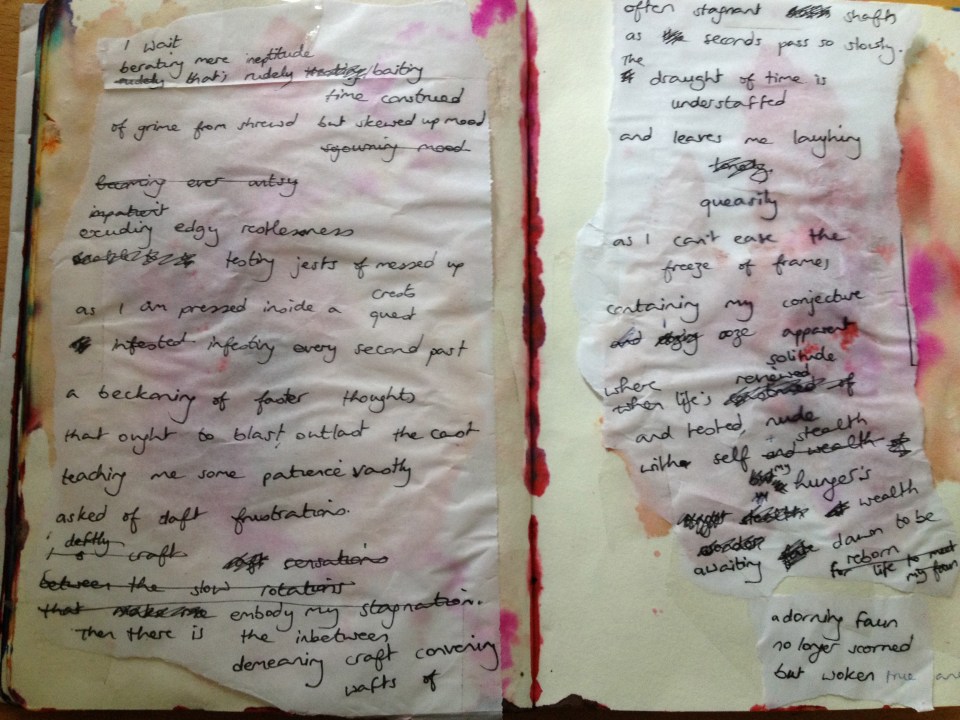 I wait
berating mere ineptitude
rudely that's rudely testing/baiting
time construed
of grime from shrewd but skewed up mood
sojourning mood
becoming ever antsy
impatient
exuding edgy restlessness
testing jests of messed up
crests
as I am pressed inside a quest
infested infesting every second past
a beckoning of faster thoughts
that ought to blast outlast the cast
teaching me some patience vastly
asked of daft frustrations.
i deftly
craft sensations
between the slow rotations
that make me embody my stagnation.
Then there is the inbetween
demeaning craft convening
wafts of
often stagnant shafts
as seconds pass so slowly.
The
draught of time is
understaffed
and leaves me laughing
queasily
as I can't ease the
freeze of frames
containing my conjecture
and ooze apparent
solitude
where reviewed
when life's of
and tested, nude
stealth
with self and wealth
my
hunger's
stealth wealth
dawn to be
awaiting reborn
for life to meet
my faun
adorning faun
no longer scorned
but woken true and